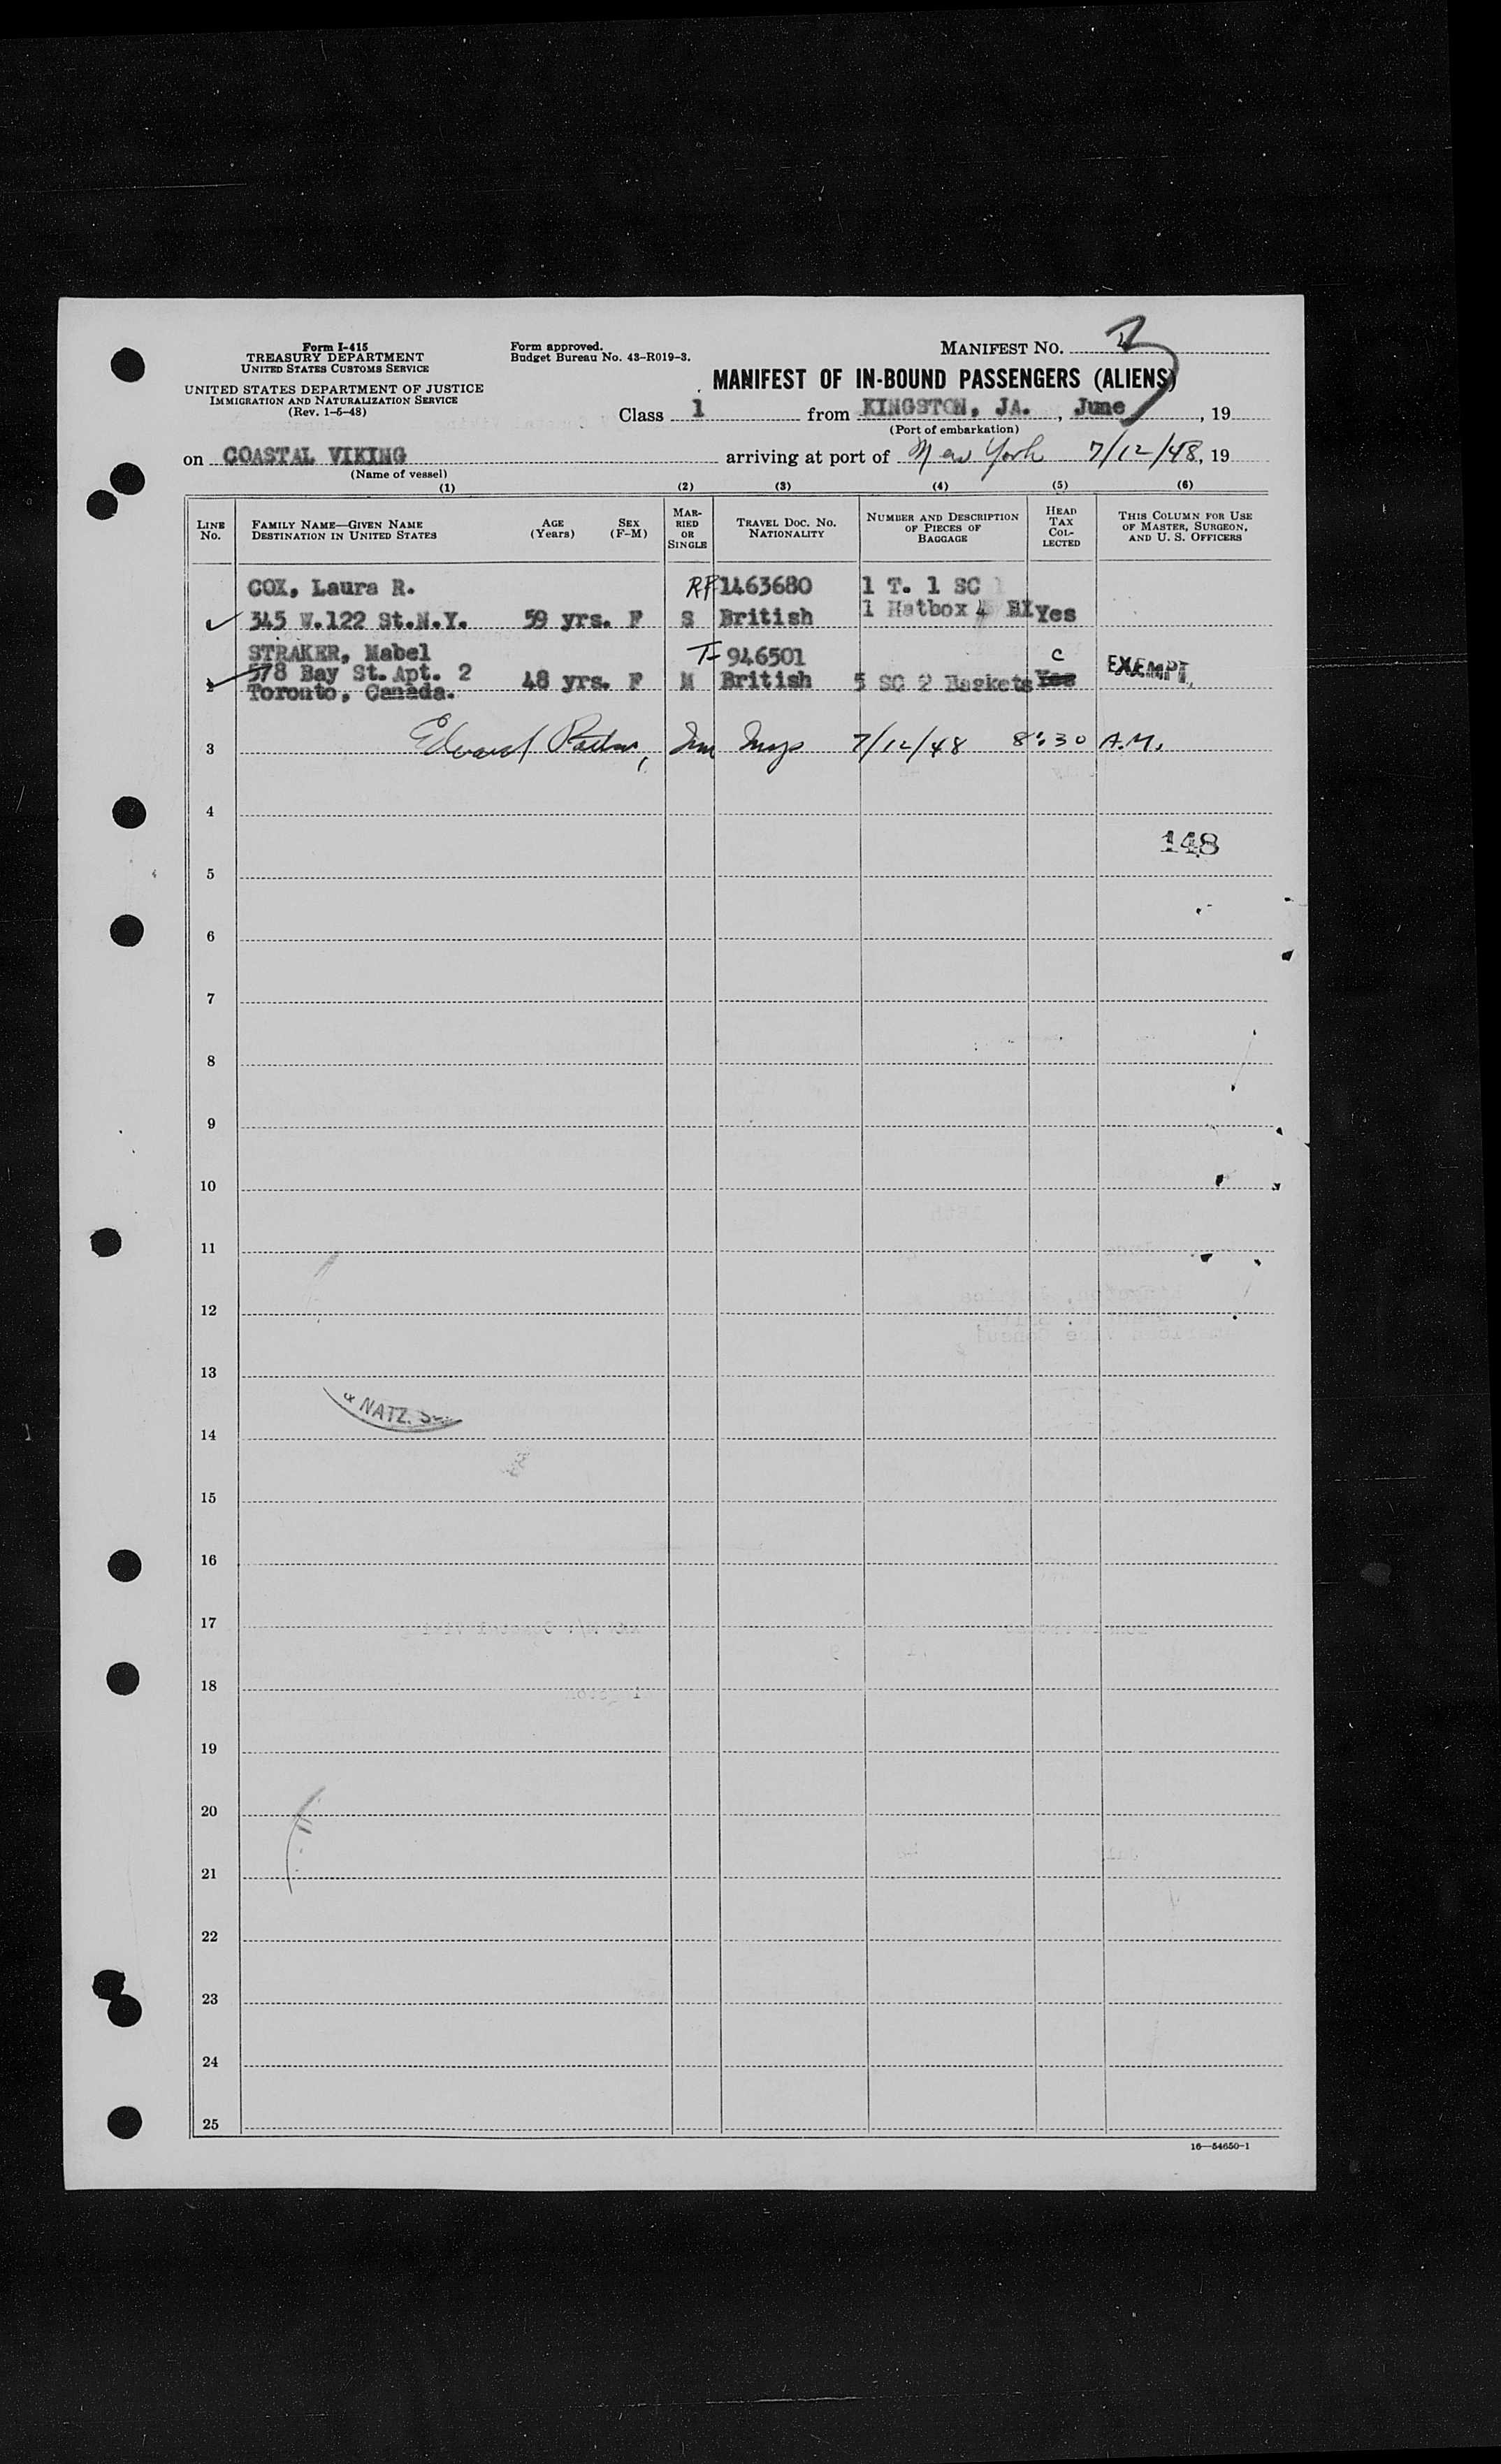 Form I-415
TREASURY DEPARTMENT
UNITED STATES CUSTOMS SERVICE
UNITED STATES DEPARTMENT OF JUSTICE
IMMIGRATION AND NATURALIZATION SERVICE
(Rev. 1-5-48)
Form approved.
Budget Bureau No. 43-R019-3.
MANIFEST NO.
MANIFEST OF IN-BOUND PASSENGERS (ALIENS)
Class 1 from KINGSTON, JA. , June , 19
(Port of embarkation)
on COASTAL VIKING arriving at port of New York 7/12/48, 19
(Name of vessel)
(1) (2) (3) (4) (5) (6)
LINE No. FAMILY NAME—GIVEN NAME DESTINATION IN UNITED STATES AGE (Years) SEX (F-M) MARRIED OR SINGLE TRAVEL DOC. NO. NATIONALITY NUMBER AND DESCRIPTION OF PIECES OF BAGGAGE HEAD TAX COLLECTED THIS COLUMN FOR USE OF MASTER, SURGEON, AND U. S. OFFICERS
COX, Laura R. RP 1463680 1 T. 1 SC
345 W.122 St.N.Y. 59 yrs. F S British 1 Hatbox 4 Yes
STRAKER, Mabel T- 946501 C
578 Bay St. Apt. 2 EXEMPT
2 Toronto, Canada. 48 yrs. F M British 5 SC 2 Baskets Yes
3 Edward Imm Insp 7/12/48 8:30 A.M.
4
148
5
6
7
8
9
10
11
12
13
& NATZ.
14
15
16
17
18
19
20
21
22
23
24
25
16—54650-1